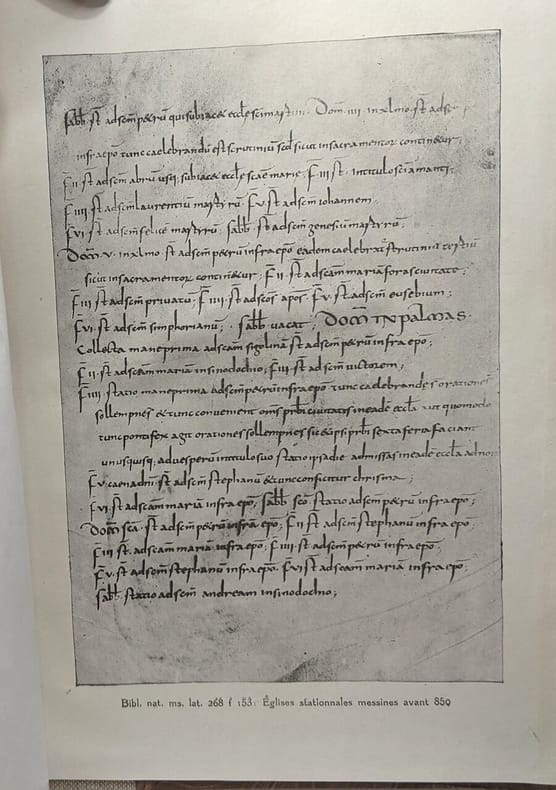 Sabb. st̄ ad scm̄ petrū qui subiacet eccłe sci martini. Dom̄. iiii. in xlmo. st̄ ad scm
infra epō tunc caelebrandū est scrutiniū scd̄ sicut in sacramentor continetur;
F̄ ii. st̄ ad scm̄ abrū usq; subiacet eccłe scae marie; F̄ iii st̄. in titulo sci amanti;
F̄ iiii st̄ ad scm̄ laurentiū martyrū; F̄ v. st̄ ad scm̄ iohannem;
F̄ vi st̄ ad scm̄ felice martyrū; Sabb. st̄ ad scm̄ genesiū martyrū;
Dom̄. v. in xlmo. st̄ ad scm̄ petrū infra epō, eadem caelebrat̄ scrutiniū tertiū
sicut in sacramentor continetur; F̄ ii. st̄ ad scam̄ mariā foras ciuitate;
F̄ iii st̄ ad scm̄ priuatū; F̄ iiii. st̄ ad scos apos̄; F̄ v. st̄ ad scm̄ eusebium;
F̄ vi. st̄ ad scm̄ simphorianū; Sabb̄ uacat; DOM̄ IN PALMAS.
Collecta mane prima ad scam̄ sigolinā st̄ ad scm̄ petrū infra epō;
F̄ ii. st̄ ad scam̄ mariā in sinodochio; F̄ iii. st̄ ad scm̄ uictorem;
F̄ iiii. statio mane prima ad scm̄ petrū infra epō tunc caelebrande s̄ orationes
sollempnes et tunc conueniunt om̄s prb̄i ciuitatis in eadē eccła aut quomodo
tunc pontifex agit orationes sollempnes sic et ipsi prb̄i sexta feria faciant
unusquisq; ad uesperū in titulo suo statio ipsa die ad missas in eadē eccła
F̄ v. caena dn̄i. st̄ ad scm̄ stephanū et tunc conficitur chrisma;
F̄ vi. st̄ ad scam̄ mariā infra epō; Sabb̄ scō. statio ad scm̄ petrū infra epō;
Dom̄ scā. st̄ ad scm̄ petrū infra epō; F̄ ii st̄ ad scm̄ stephanū infra epō;
F̄ iii st̄. ad scam̄ mariā infra epō; F̄ iiii. st̄ ad scm̄ petrū infra epō;
F̄ v. st̄ ad scm̄ stephanū infra epō. F̄ vi st̄ ad scam̄ mariā infra epō;
Sabb̄. statio ad scm̄ andream in sinodochio;
Bibl. nat. ms. lat. 268 f 153: Églises stationnales messines avant 850